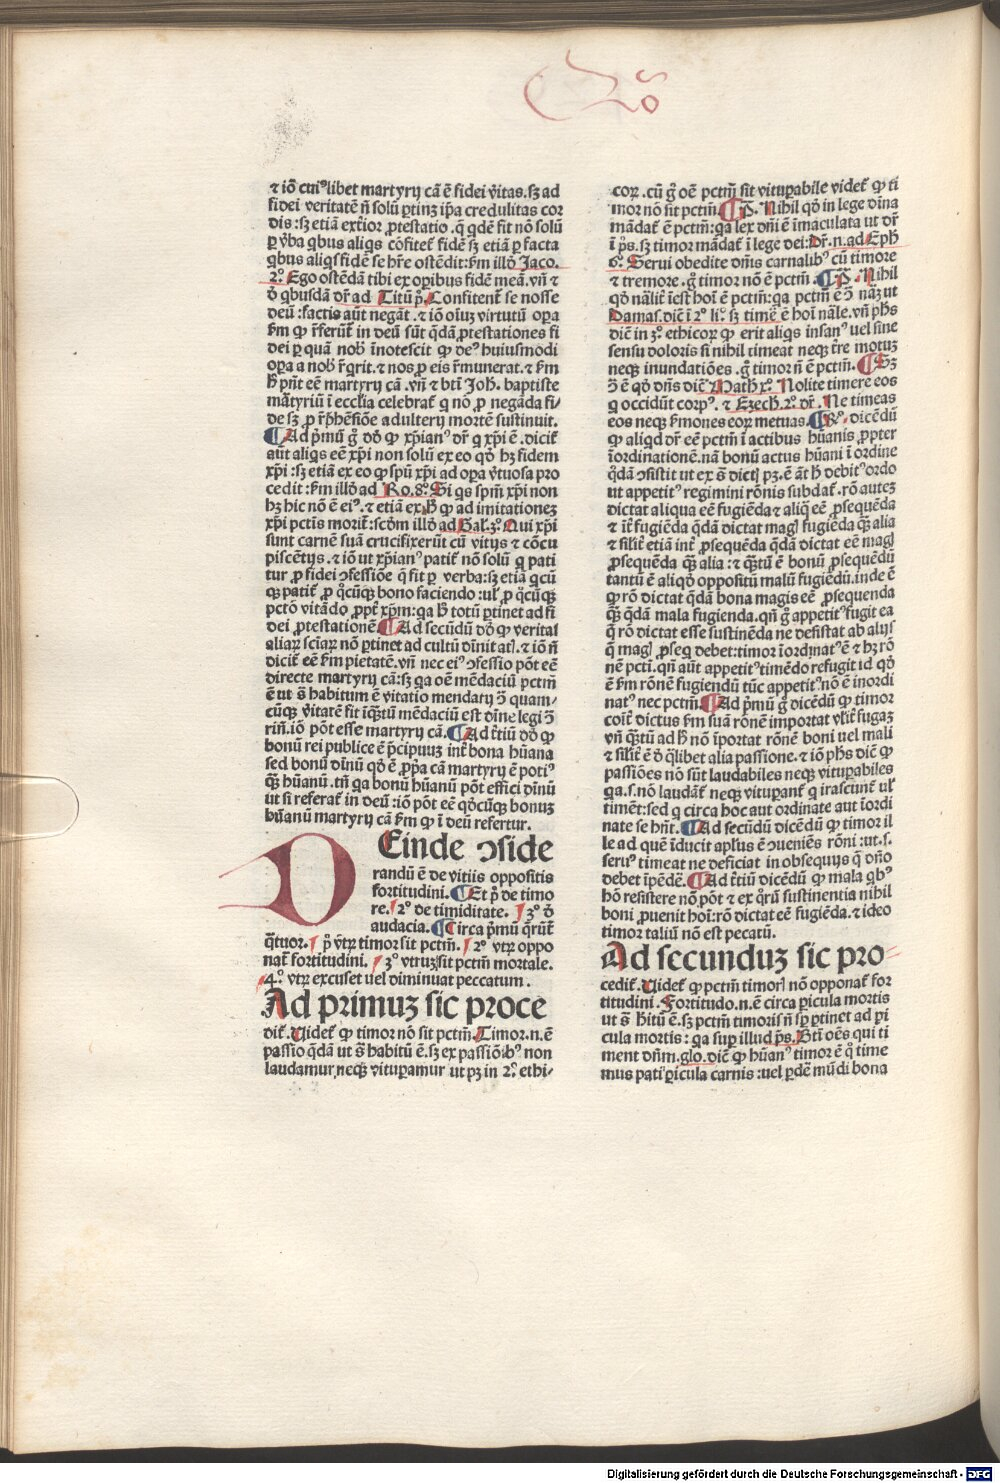 ⁊ iõ cuiꝰlibet martyrij cã ẽ fidei v̾itas.sꝫ ad
fidei veritatẽ ñ solũ ꝑtinꝫ ip̃a credulitas cor
dis:sꝫ etiã exte̾ior ꝓtestatio.q̃ qdẽ fit nõ solũ
ꝑ v̾ba qbus aliqs cõfitet̃ fidẽ sꝫ etiã ꝑ facta
qbus aliqs fidẽ se hr̃e ostẽdit:ẜm illð Jaco.
2.° Ego ostẽdã tibi ex oꝑibus fidẽ meã.vñ ⁊
ð qbusdã dr̃ ad Titũ p̾. Confitent̃ se nosse
deũ:factis aũt negãt.⁊ iõ oĩuꝫ virtutũ oꝑa
ẜm ꝙ r̃ferũt̃ in deũ sũt qdã ꝓtestationes fi
dei ꝑ quã nob̃ ĩnotescit ꝙ deꝰ huiusmodi
oꝑa a nob̃ r̃qrit.⁊ nos ꝓ eis r̃munerat.⁊ ẜm
h̾ pñt eẽ martyrij cã.vñ ⁊ bt̃i Joh̃. baptiste
martyriũ ĩ ecclĩa celebrat̃ q nõ ꝓ negãda fi-
de sꝫ ꝓ r̃p̾hẽsiõe adulterij mortẽ sustinuit.
¶Ad p̾mũ g̾ dð ꝙ xp̃ianꝰ dr̃ q xp̃i ẽ.dicit̃
aũt aliqs eẽ xp̃i non solũ ex eo qð hꝫ fidem
xp̃i:sꝫ etiã ex eo ꝙ spũ xp̃i ad oꝑa v̾tuosa pro
cedit:ẜm illð ad Ro.8.° Si qs spm̃ xp̃i non
hꝫ hic nõ ẽ eiꝰ.⁊ etiã ex h̾ ꝙ ad imitationeꝫ
xp̃i pctĩs morit̃:scðm illð ad Gal.3.° Qui xp̃i
sunt carnẽ suã crucifixerũt cũ vitijs ⁊ cõcu
piscẽtijs.⁊ iõ ut xp̃ianꝰ patit̃ nõ solũ q pati
tur ꝓ fidei ꝯfessiõe q̃ fit ꝑ verba:sꝫ etiã qcũ
qꝫ patit̃ ꝓ q̃cũqꝫ bono faciendo:ul̾ ꝓ q̃cũqꝫ
pctõ vitãdo ꝓpt̾ xp̃m:qa h̾ totũ ꝑtinet ad fi
dei ꝓtestationẽ ¶Ad secũdũ dð ꝙ veritas
aliaꝝ sciãꝝ nõ ꝑtinet ad cultũ dĩnitatĩ.⁊ iõ ñ
dicit̃ eẽ ẜm pietatẽ.vñ nec eiꝰ ꝯfessio põt eẽ
directe martyrij cã:sꝫ qa oẽ mẽdaciũ pctm̃
ẽ ut s̾ habitum ẽ vitatio mendacij ꝯ quam-
cũqꝫ v̾itatẽ fit ĩq̃tũ mẽdaciũ est dĩne legi ꝯ
riũ.iõ põt esse martyrij cã.¶Ad t̾tiũ dð ꝙ
bonũ rei publice ẽ p̾cipuuꝫ int̾ bona hũana
sed bonũ diuinũ qð ẽ ꝓp̾a cã martyrij ẽ potiꝰ
q̃ꝫ hũanũ.tñ qa bonũ hũanũ põt effici diuinũ
ut si referat̃ in deũ:iõ põt eẽ qðcũqꝫ bonuꝫ
hũanũ martyrij cã ẜm ꝙ ĩ deũ refertur.
DEinde ꝯside
randũ ẽ de vitijs oppositis
fortitudini.¶Et p̾ de timo
re. 2° de timiditate. 3° ð
audacia.¶Circa p̾mũ q̃rũt̃
q̃tuor. p̾ vtꝝ timor sit pctm̃. 2° vtꝝ oppo
nat̃ fortitudini. 3° vtruꝫ sit pctm̃ mortale.
4.° vtꝝ excuset uel diminuat peccatum.
Ad primuꝫ sic proce
dit̃.Videt̃ ꝙ timor nõ sit pctm̃.Timor.n.ẽ
passio qdã ut s̾ habitũ ẽ.sꝫ ex passiõibꝰ non
laudamur neqꝫ vituꝑamur ut pꝫ in 2.° ethi-
coꝝ.cũ g̾ oẽ pctm̃ sit vituꝑabile videt̃ ꝙ ti
mor nõ sit pctm̃.¶P̾. Nihil qð in lege diuina
mãdat̃ ẽ pctm̃:qa lex dñi ẽ ĩmaculata ut dr̃
ĩ p̾s.sꝫ timor mãdat̃ ĩ lege dei:dr̃.n.ad Eph
6.° Serui obedite dñis carnalibꝰ cũ timore
⁊ tremore.g̾ timor nõ ẽ pctm̃.¶P̾. Nihil
qð nãlit̾ ĩest hoĩ ẽ pctm̃:qa pctm̃ ẽ ꝯ nãꝫ ut
Damas.dic̃ ĩ 2.° li.° sꝫ timẽ ẽ hoĩ nãle.vñ phs
dic̃ in 3.° ethicoꝝ ꝙ erit aliqs insanꝰ uel sine
sensu doloris si nihil timeat neqꝫ t̾re motuꝫ
neqꝫ inundatiões.g̾ timor ñ ẽ pctm̃.¶Sꝫ
ꝯ ẽ qð dñs dic̃ Math̃ x.° Nolite timere eos
q occidũt corpꝰ.⁊ Ezech.2.° dr̃.Ne timeas
eos neqꝫ ẜmones eoꝝ metuas.¶R̾.°dicẽdũ
ꝙ aliqd dr̃ eẽ pctm̃ ĩ actibus hũanis ꝓpter
ĩordinationẽ.nã bonũ actus hũani ĩ ordine
q̃dã ꝯsistit ut ex s̾ dictĩ pꝫ.ẽ aũt h̾ debitꝰ ordo
ut appetitꝰ regimini rõnis subdat̃.rõ auteꝫ
dictat aliqua eẽ fugiẽda ⁊ aliq̃ eẽ ꝓsequẽda
⁊ int̾ fugiẽda qdã dictat magĩ fugiẽda q̃ꝫ alia
⁊ silit̾ etiã int̾ ꝓsequẽda qdã dictat eẽ magĩ
ꝓsequẽda q̃ꝫ alia:⁊ q̃tũ ẽ bonũ ꝓsequẽdũ
tantũ ẽ aliqð oppositũ malũ fugiẽdũ.inde ẽ
ꝙ rõ dictat qdã bona magis eẽ ꝓsequenda
q̃ꝫ qdã mala fugienda.qñ g̾ appetitꝰ fugit ea
q̃ rõ dictat esse sustinẽda ne desistat ab alijs
q̃ magĩ ꝓseq debet:timor ĩordinatꝰ ẽ ⁊ hꝫ rõ
nẽ pcti.qñ aũt appetitꝰ timẽdo refugit id qð
ẽ ẜm rõnẽ fugiendũ tũc appetitꝰ nõ ẽ inordi
natꝰ nec pctm̃.¶Ad p̾mũ g̾ dicẽdũ ꝙ timor
coit̾ dictus ẜm suã rõnẽ importat vl̾it̾ fugaꝫ
vñ q̃tũ ad h̾ nõ ĩportat rõnẽ boni uel mali
⁊ silit̾ ẽ ð q̃libet alia passione.⁊ iõ phs dic̃ ꝙ
passiões nõ sũt laudabiles neqꝫ vituꝑabiles
qa.s.nõ laudãt̃ neqꝫ vituꝑant̃ q irascunt̃ ul̾
timẽt:sed q circa hoc aut ordinate aut ĩordi
nate se hñt.¶Ad secũdũ dicẽdũ ꝙ timor il
le ad quẽ ĩducit apl̾us ẽ ꝯueniẽs rõni:ut.s.
seruꝰ timeat ne deficiat in obsequijs q̃ dño
debet ĩpẽdẽ.¶Ad t̾tiũ dicẽdũ ꝙ mala qbꝰ
hõ resistere nõ põt ⁊ ex q̃rũ sustinentia nihil
boni ꝓuenit hoĩ:rõ dictat eẽ fugiẽda.⁊ ideo
timor taliũ nõ est pecatũ.
Ad secunduꝫ sic pro-
cedit̃.Videt̃ ꝙ pctm̃ timorĩ nõ opponat̃ for
titudini.Fortitudo.n.ẽ circa ꝑicula mortis
ut s̾ h̾itũ ẽ.sꝫ pctm̃ timoris ñ sꝑ ꝑtinet ad ꝑi
cula mortis:qa suꝑ illud p̾s.Bt̃i oẽs qui ti
ment dñm.glo.dic̃ ꝙ hũanꝰ timor ẽ q̃ time
mus pati ꝑicula carnis:uel ꝑdẽ mũdi bona
Digitalisierung gefördert durch die Deutsche Forschungsgemeinschaft - DFG